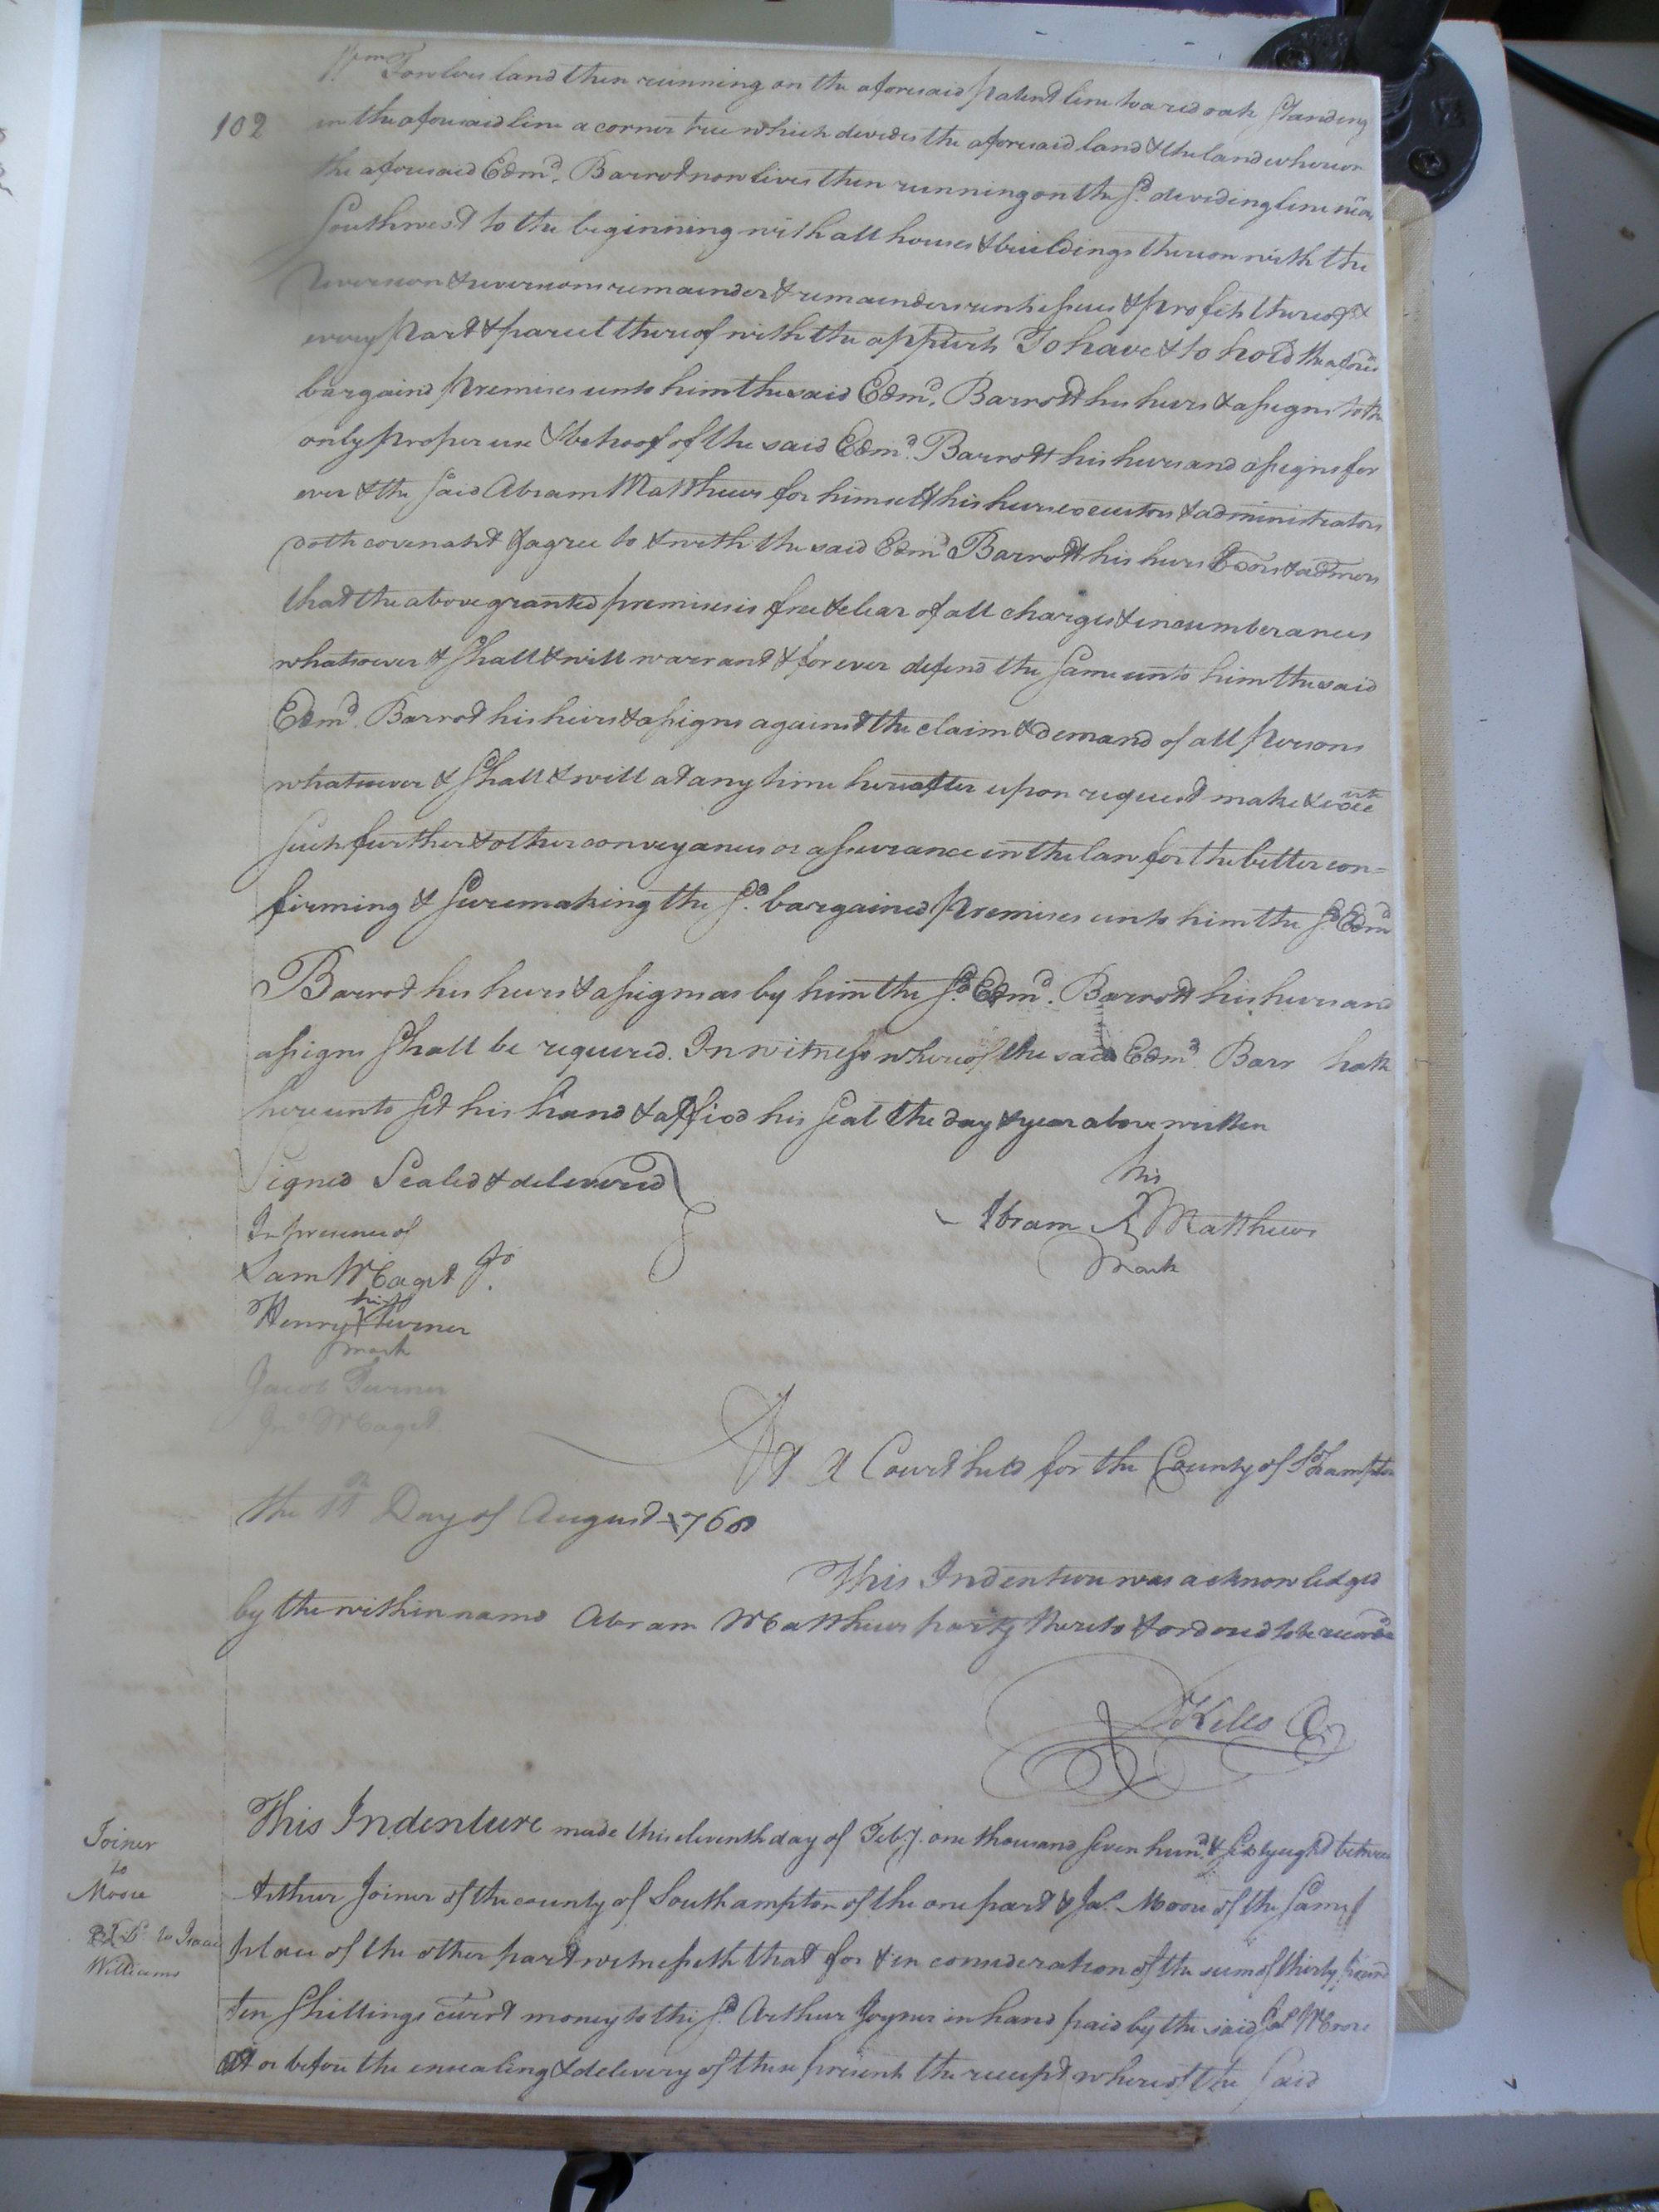 Wm Fowlers land then running on the aforesaid patent line to a red oak standing
102
in the aforesaid line a corner tree which devides the aforesaid land & the land whereon
the aforesaid Edmd. Barrot now lives then running on the sd. deviding line near
Southwest to the beginning with all houses & buildings thereon with the
reversion & reversions remainder & remainders rents issues & profits thereof &
every part & parcel thereof with the appurts To have & to hold the afored
bargaind premises unto him the said Edmd. Barrott his heirs & assigns to the
only proper use & behoof of the said Edmd. Barrott his heirs and assigns for
ever & the said Abram Matthews for himself his heirs executors & administrators
doth covenant & agree to & with the said Edmd Barrott his heirs Exors & admors
that the above granted premises is free & clear of all charges & incumberances
whatsoever & shall & will warrant & for ever defend the same unto him the said
Edmd. Barrot his heirs & assigns against the claim & demand of all persons
whatsoever & shall & will at any time hereafter upon request make &
such further & other conveyances or assurance in the law for the better con=
firming & suremaking the sd. bargained premises unto him the sd Edmd
Barrot his heirs & assigns as by him the sd. Edmd. Barrott his heirs and
assigns shall be required. In witness whereof the said Edmd. Barr hath
hereunto set his hand & affixd his seal the day & year above written
Signed Sealed & delivered
In presence of
Sam Maget Jr.
his
Henry Turner
mark
Jacob Turner
Jno Maget
his
Abram Matthews
mark
At a Court held for the County of
the 11th Day of August 1768
This Indenture was acknowledged
by the within namd Abram Matthews party thereto & ordered to be recorded
This Indenture made this eleventh day of Feby. one thousand seven hund. & sixty eight between
Joiner
to
Moore
to Isaac
Williams
Arthur Joiner of the county of Southampton of the one part & Jas. Moore of the same
place of the other part witnesseth that for & in consideration of the sum of thirty pound
ten shillings currt money to the sd. Arthur Joyner in hand paid by the said Jas Moore
At or before the ensealing & delivery of these present the receipt whereof the said